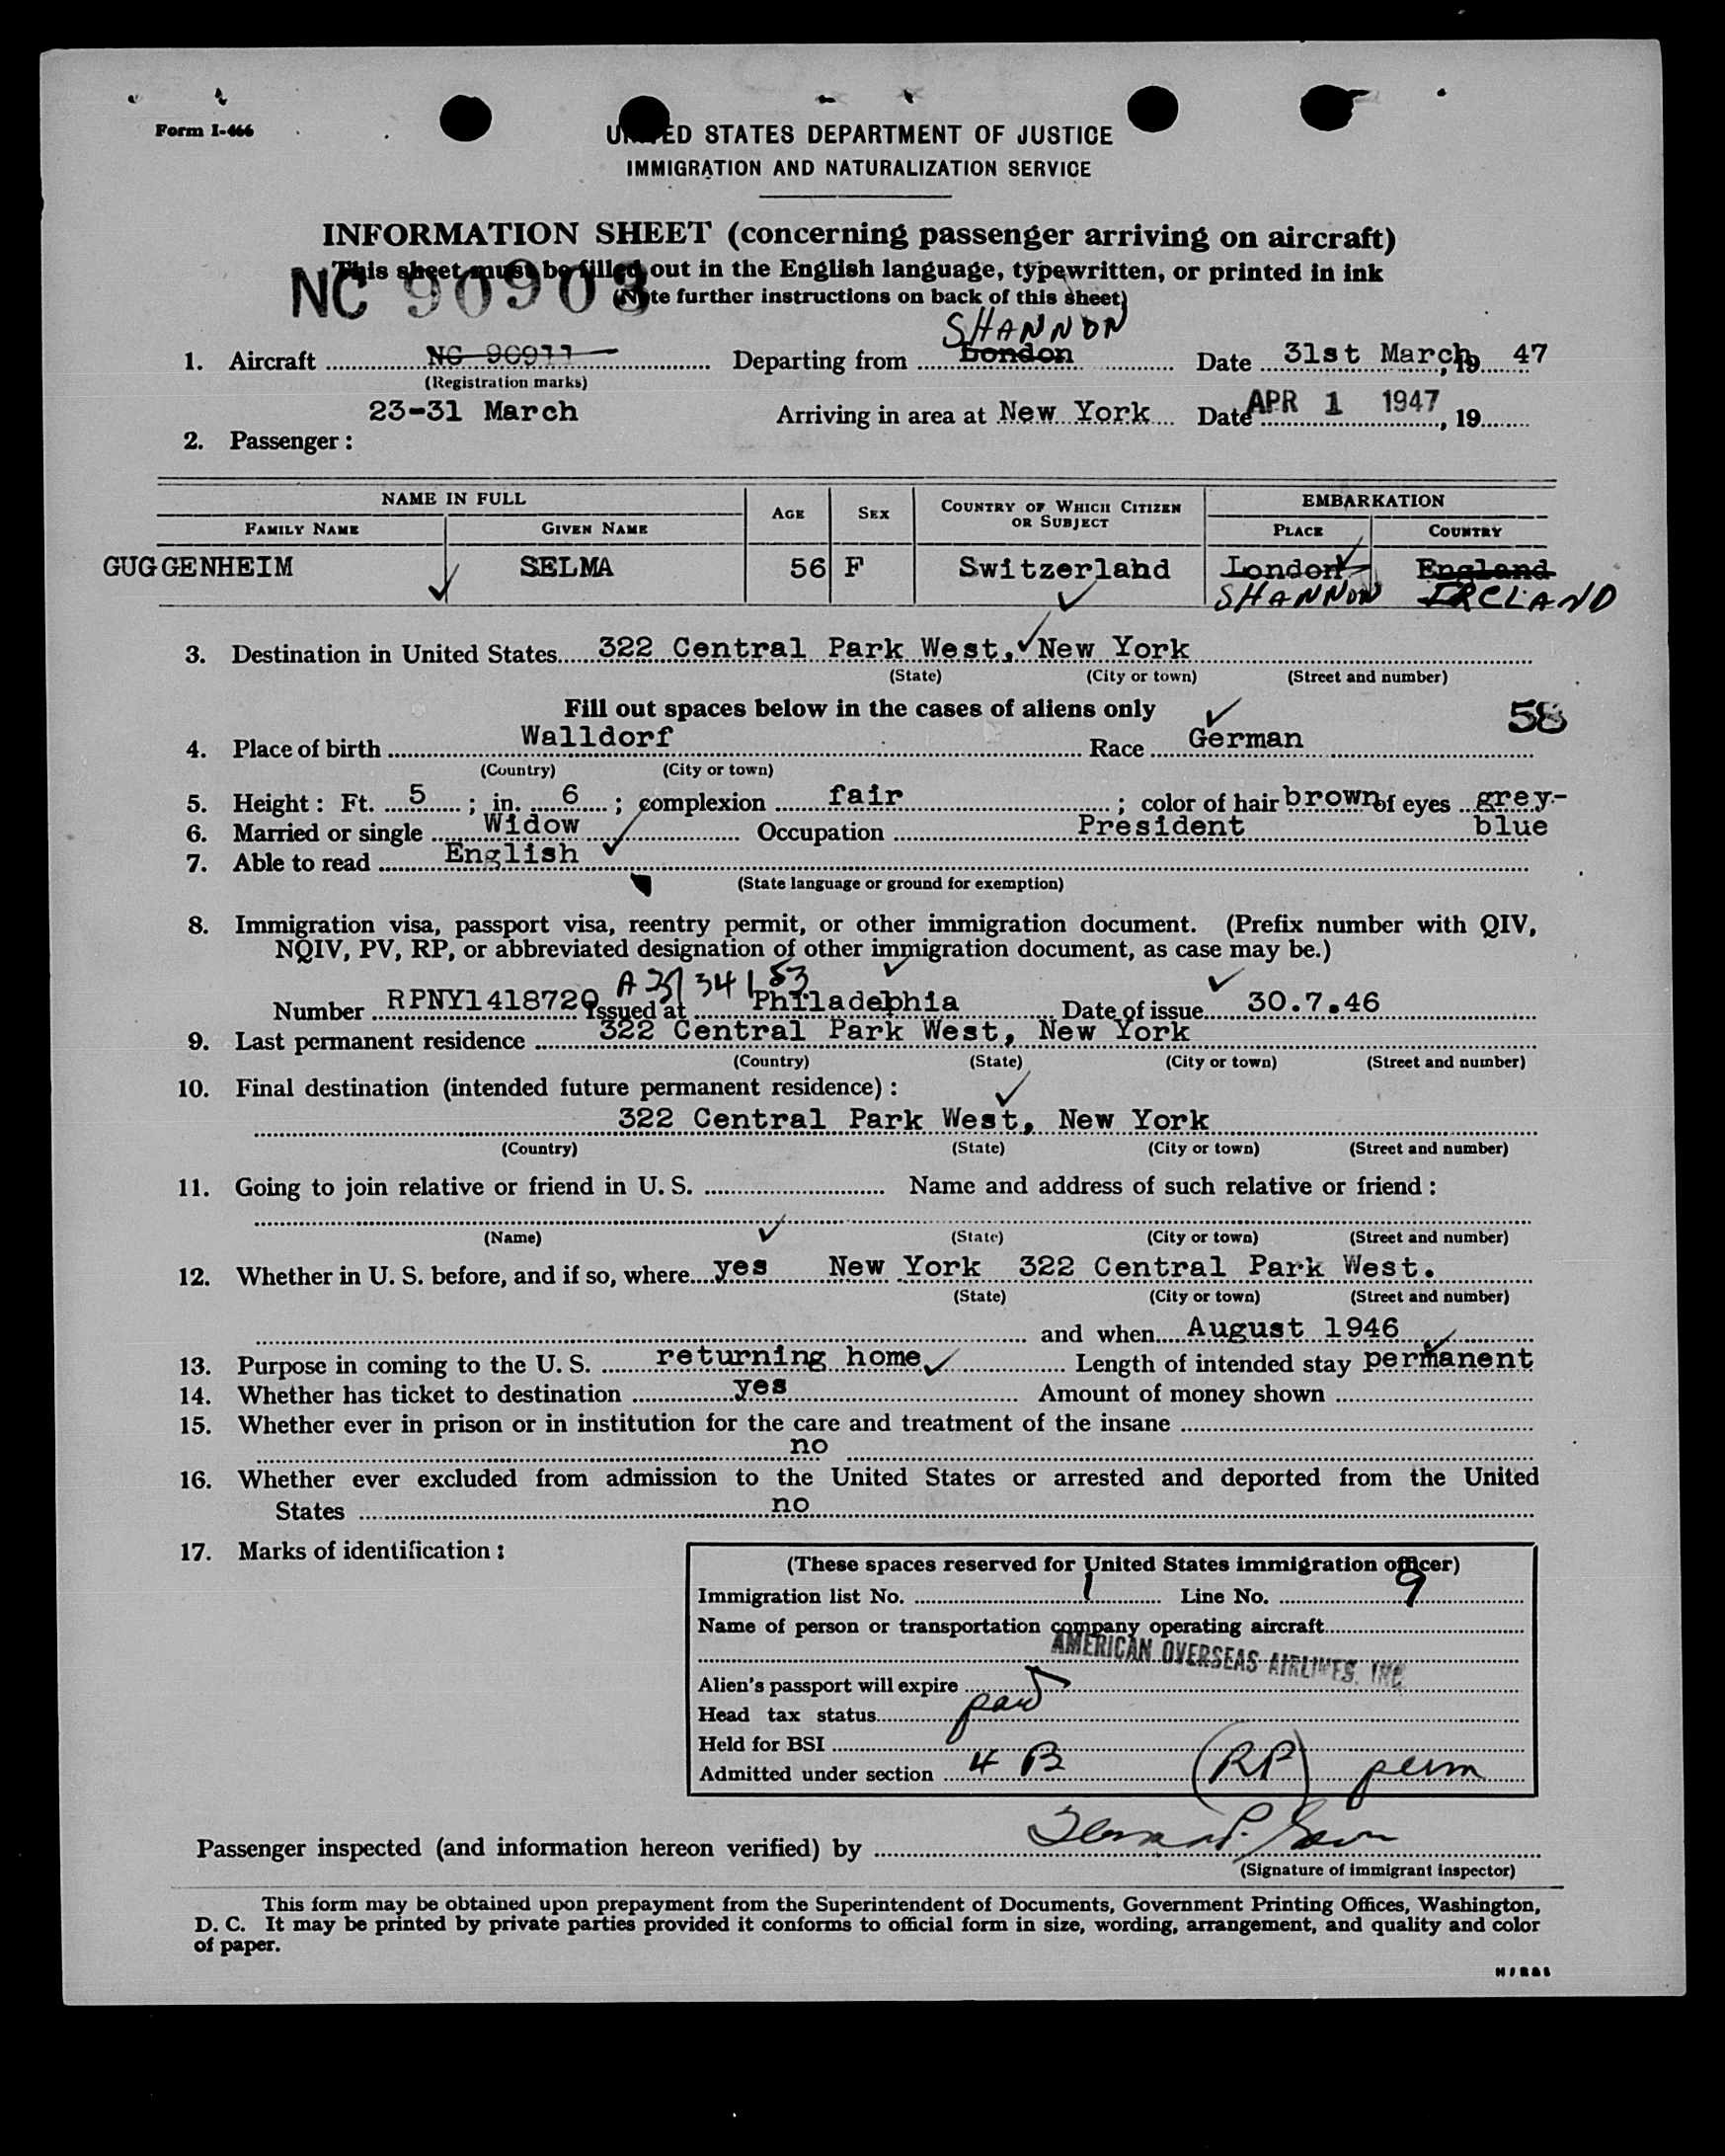 Form I-466
UNITED STATES DEPARTMENT OF JUSTICE
IMMIGRATION AND NATURALIZATION SERVICE
INFORMATION SHEET (concerning passenger arriving on aircraft)
This sheet must be filled out in the English language, typewritten, or printed in ink
NC 90903 (Note further instructions on back of this sheet)
SHANNON
1. Aircraft NC 90911 Departing from London Date 31st March, 19 47
(Registration marks)
23-31 March Arriving in area at New York Date APR 1 1947, 19
2. Passenger :
NAME IN FULL AGE SEX COUNTRY OF WHICH CITIZEN OR SUBJECT EMBARKATION
FAMILY NAME GIVEN NAME PLACE COUNTRY
GUGGENHEIM SELMA 56 F Switzerland London England
SHANNON IRELAND
3. Destination in United States 322 Central Park West, New York
(State) (City or town) (Street and number)
Fill out spaces below in the cases of aliens only
58
4. Place of birth Walldorf Race German
(Country) (City or town)
5. Height : Ft. 5 ; in. 6 ; complexion fair ; color of hair brown of eyes grey-
6. Married or single Widow Occupation President blue
7. Able to read English
(State language or ground for exemption)
8. Immigration visa, passport visa, reentry permit, or other immigration document. (Prefix number with QIV,
NQIV, PV, RP, or abbreviated designation of other immigration document, as case may be.)
Number RPNY1418720 Issued at Philadephia Date of issue 30.7.46
9. Last permanent residence 322 Central Park West, New York
(Country) (State) (City or town) (Street and number)
10. Final destination (intended future permanent residence) :
322 Central Park West, New York
(Country) (State) (City or town) (Street and number)
11. Going to join relative or friend in U. S. Name and address of such relative or friend :
(Name) (State) (City or town) (Street and number)
12. Whether in U. S. before, and if so, where yes New York 322 Central Park West.
(State) (City or town) (Street and number)
and when August 1946
13. Purpose in coming to the U. S. returning home Length of intended stay permanent
14. Whether has ticket to destination yes Amount of money shown
15. Whether ever in prison or in institution for the care and treatment of the insane
no
16. Whether ever excluded from admission to the United States or arrested and deported from the United
States no
17. Marks of identification :
(These spaces reserved for United States immigration officer)
Immigration list No. 1 Line No. 9
Name of person or transportation company operating aircraft
AMERICAN OVERSEAS AIRLINES, INC
Alien's passport will expire
Head tax status paid
Held for BSI
Admitted under section 4 B (RP) perm
Passenger inspected (and information hereon verified) by
(Signature of immigrant inspector)
This form may be obtained upon prepayment from the Superintendent of Documents, Government Printing Offices, Washington,
D. C. It may be printed by private parties provided it conforms to official form in size, wording, arrangement, and quality and color
of paper.